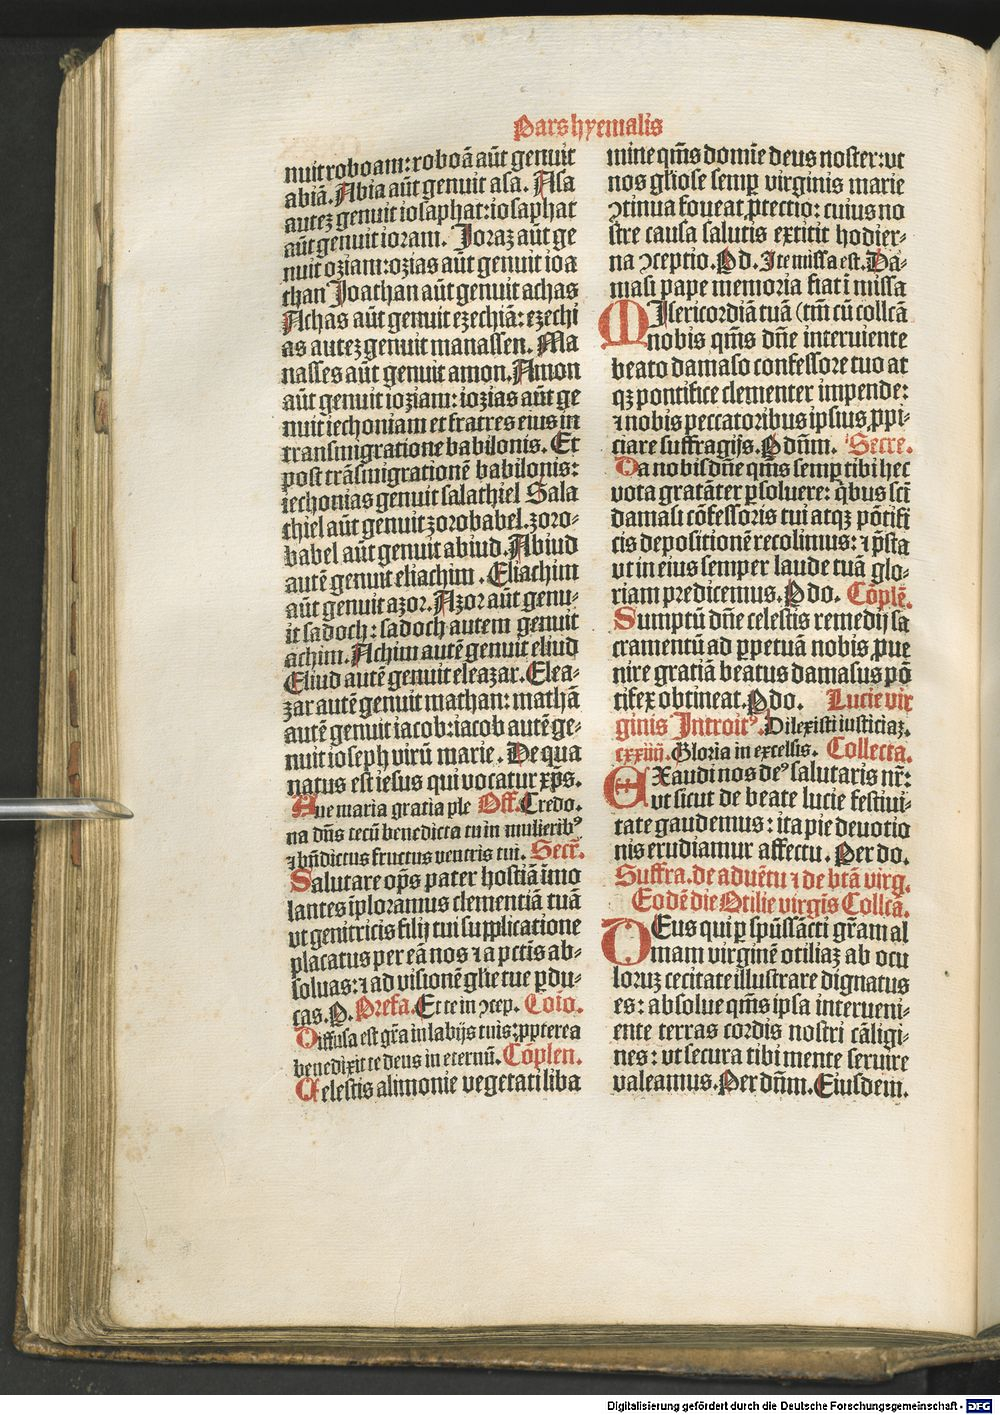 Pars hyemalis
nuit roboam: roboā aūt genuit
abiā. Abia aūt genuit asa. Asa
autez genuit iosaphat: iosaphat
aūt genuit ioram. Joraz aūt ge
nuit oziam: ozias aūt genuit ioa
than Joathan aūt genuit achas
Achas aūt genuit ezechiā: ezechi
as autez genuit manassen. Ma
nasses aūt genuit amon. Amon
aūt genuit ioziam: iozias aūt ge
nuit iechoniam et fratres eius in
transmigratione babilonis. Et
post trāsmigrationē babilonis:
iechonias genuit salathiel Sala
thiel aūt genuit zorobabel. zoro-
babel aūt genuit abiud. Abiud
autē genuit eliachim. Eliachim
aūt genuit azor. Azor aūt genu-
it sadoch: sadoch autem genuit
achim. Achim autē genuit eliud
Eliud autē genuit eleazar. Elea-
zar autē genuit mathan: mathā
autē genuit iacob: iacob autē ge-
nuit ioseph virū marie. De qua
natus est iesus qui vocatur xp̄s.
Aue maria gratia ple Off. Credo.
na dn̄s tecū benedicta tu in mulieribꝰ
⁊ bn̄dictus fructus ventris tui. Secr̄.
Salutare op̄s pater hostiā īmo
lantes īploramus clementiā tuā
vt genitricis filij tui supplicatione
placatus per eā nos ⁊ a pctīs ab-
soluas: ⁊ ad visionē glīe tue ꝑdu-
cas. P. Prefa. Et te in ꝯcep. Coīo.
Diffusa est gr̄a in labijs tuis: ꝓpterea
benedixit te deus in eternū. Cōplen.
Celestis alimonie vegetati liba
mine qm̄s domīe deus noster: vt
nos gl̄iose semꝑ virginis marie
ꝯtinua foueat ꝓtectio: cuius no
stre causa salutis extitit hodier-
na ꝯceptio. Pd. Ite missa est. Da-
masi pape memoria fiat ī missa
MIsericordiā tuā (tm̄ cū collcā
nobis qm̄s dn̄e interuiente
beato damaso confessore tuo at
qꝫ pontifice clementer impende:
⁊ nobis peccatoribus ipsius ꝓpi-
ciare suffragijs. P dn̄m. Secre.
Da nobis dn̄e qm̄s semꝑ tibi hec
vota gratāter ꝑsoluere: qͥbus sct̄i
damasi cōfessoris tui atqꝫ pōtifi
cis depositionē recolimus: ⁊ p̄sta
vt in eius semper laude tuā glo-
riam predicemus. P do. Cōplē.
Sumptū dn̄e celestis remedij sa
cramentū ad ꝑpetuā nobis ꝓue
nire gratiā beatus damasus pō
tifex obtineat. P do. Lucie vir
ginis Introitꝰ. Dilexisti iusticiaz.
cxxiiij. Gloria in excelsis. Collecta.
EXaudi nos deꝰ salutaris nr̄:
vt sicut de beate lucie festiui-
tate gaudemus: ita pie deuotio
nis erudiamur affectu. Per do.
Suffra. de aduētu ⁊ de btā virg.
Eodē die Otilie virgīs Collcā.
DEus qui ꝑ spūssācti gr̄am al
mam virginē otiliaz ab ocu
loruꝫ cecitate illustrare dignatus
es: absolue qm̄s ipsa interueni-
ente terras cordis nostri cāligi-
nes: vt secura tibi mente seruire
valeamus. Per dn̄m. Eiusdem.
Digitalisierung gefördert durch die Deutsche Forschungsgemeinschaft - DFG